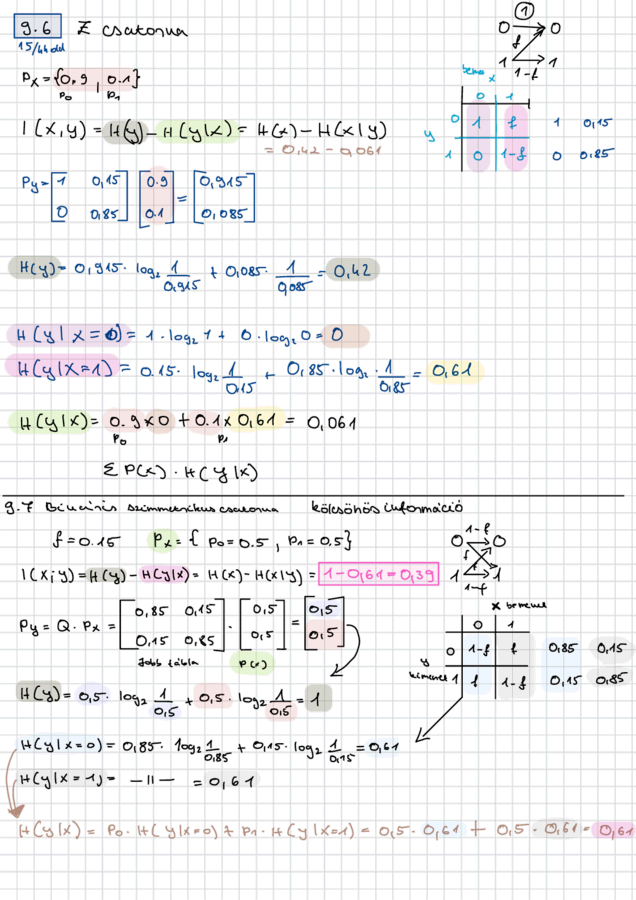 9.6 Z csatorna
15/44 old
① 
0 → 0
f
1 → 1
1-f
Px = {0.9 , 0.1}
P0 P1
bemenet x
0 1
y 0 1 f 1 0,15
1 0 1-f 0 0.85
I(x,y) = H(y) - H(y|x) = H(x) - H(x|y)
= 0,42 - 0,061
Py = [1 0,15; 0 0,85] [0.9; 0.1] = [0,915; 0,085]
H(y) = 0,915 · log₂ 1/0,915 + 0,085 · 1/0,085 = 0,42
H(y|x=0) = 1 · log₂ 1 + 0 · log₂ 0 = 0
H(y|x=1) = 0.15 · log₂ 1/0,15 + 0,85 · log₂ · 1/0,85 = 0,61
H(y|x) = 0.9 x 0 + 0.1 x 0,61 = 0,061
P0 P1
Σ P(x) · H(y|x)
9.7 Bináris szimmetrikus csatorna kölcsönös információ
f = 0.15 Px = { P0 = 0.5 , P1 = 0,5}
1-f
0 → 0
f f
1 → 1
1-f
I(x;y) = H(y) - H(y|x) = H(x) - H(x|y) = 1 - 0,61 = 0,39
Py = Q · Px = [0,85 0,15; 0,15 0,85] · [0,5; 0,5] = [0,5; 0,5]
jobb tábla P(x)
x bemenet
0 1
y 0 1-f f 0,85 0,15
kimenet 1 f 1-f 0,15 0,85
H(y) = 0,5 · log₂ 1/0,5 + 0,5 · log₂ 1/0,5 = 1
H(y|x=0) = 0,85 · log₂ 1/0,85 + 0,15 · log₂ 1/0,15 = 0,61
H(y|x=1) = —||— = 0,61
H(y|x) = P0 · H(y|x=0) + P1 · H(y|x=1) = 0,5 · 0,61 + 0,5 · 0,61 = 0,61